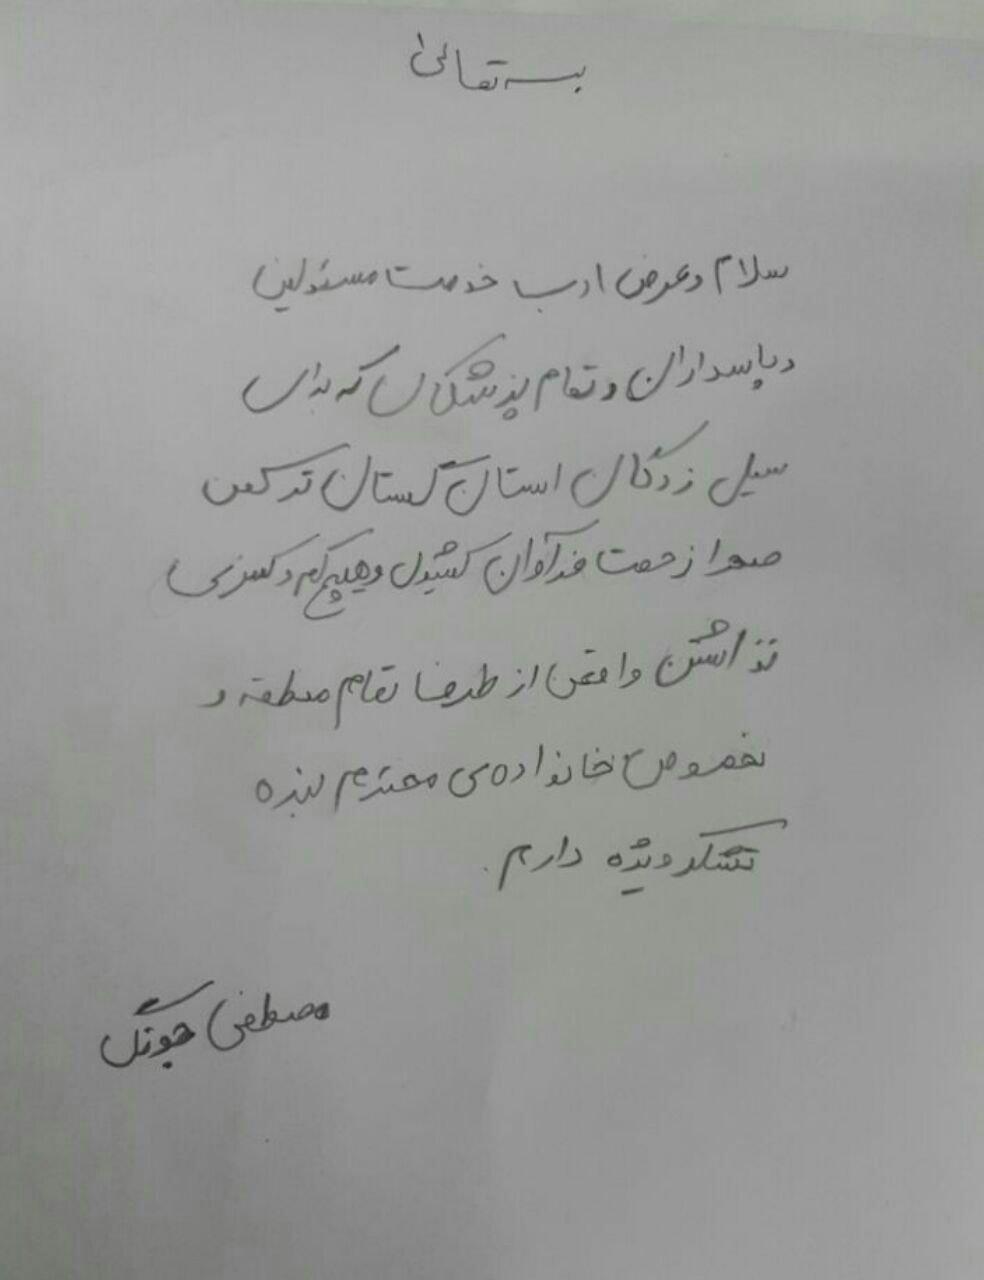 بسه تعالی
سلام و عرض ادب خدمت مسئولین
و پاسداران و تمام پزشکان که برای
سیل زدگان استان گلستان ترکمن
صحرا زحمت فرآوان کشیدن و هیچ کم و کسری
نذاشتن واقعن از طرف تمام منطقه و
بخصوص خانواده‌ی محترم بنده
تشکر ویژه دارم.
مصطفی